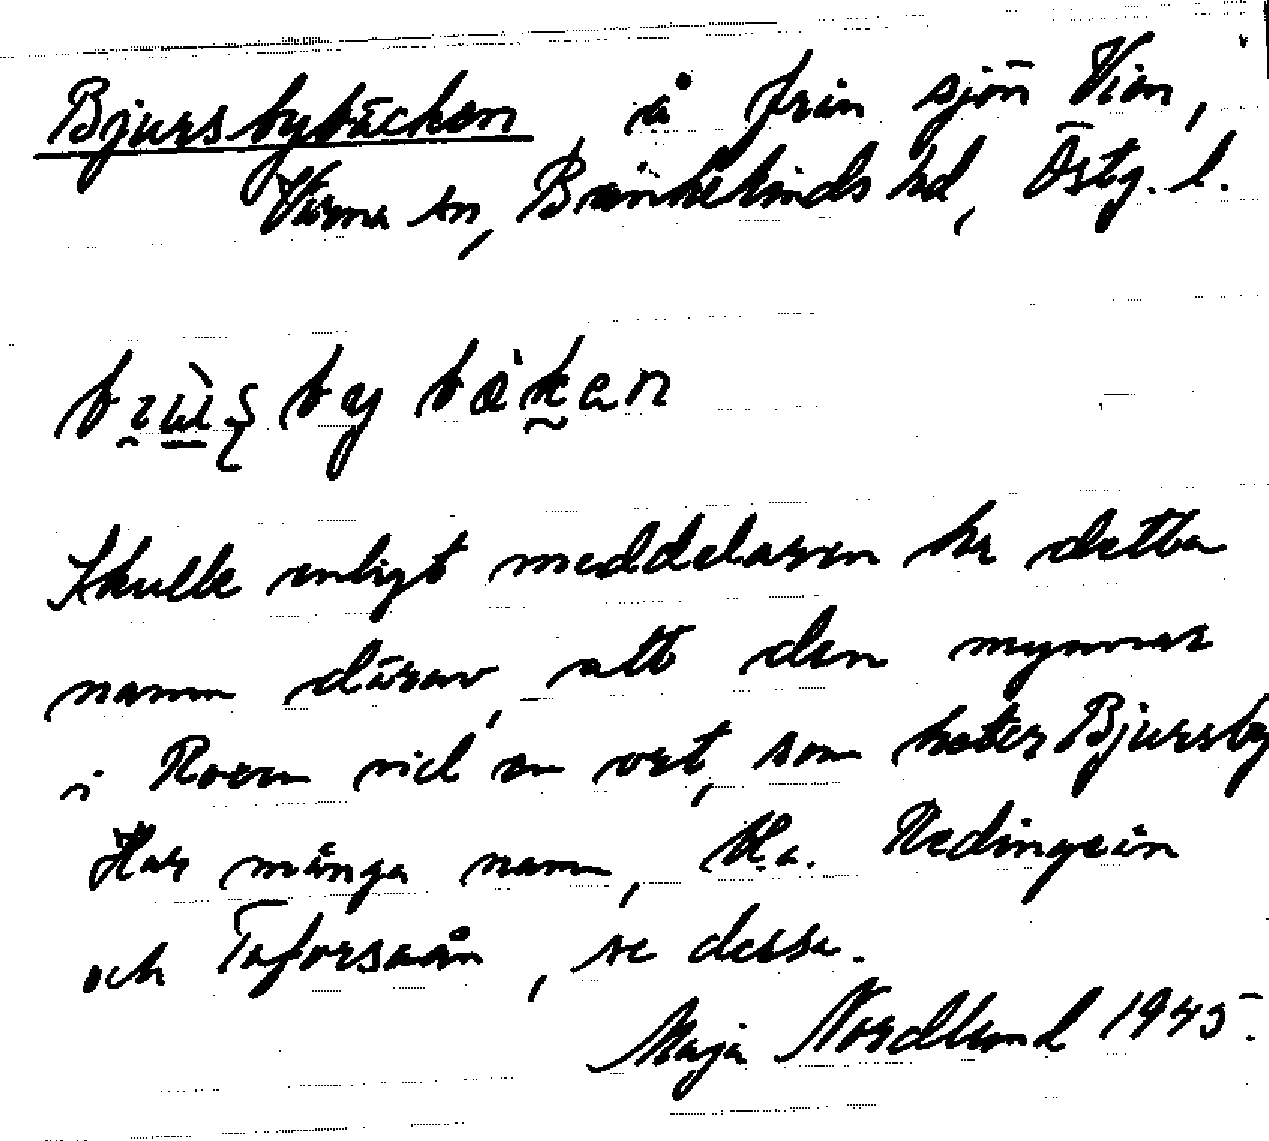 Bjursbybäcken, å från sjön Vian,
Värna sn, Bankekinds hd, Östg. l.
by bäkan
Skulle enligt meddelaren ha detta
namn därav, att den mynnar
i Roen vid en vret, som heter Bjursby
Har många namn, bl.a. Nedingeån
och Taforsaån, se dessa.
Maja Nordlund 1945.